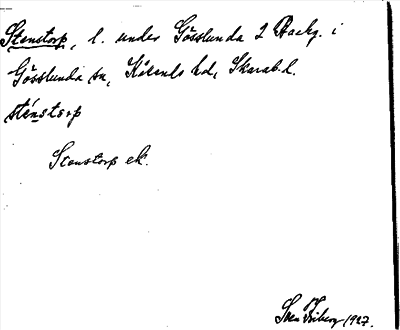 Stenstorp, l. under Gösslunda 2 Backg. i
Gösslunda sn, Kållands hd, Skarab.l.
sténstorp
Stenstorp ek.
Sven Friberg 1927.